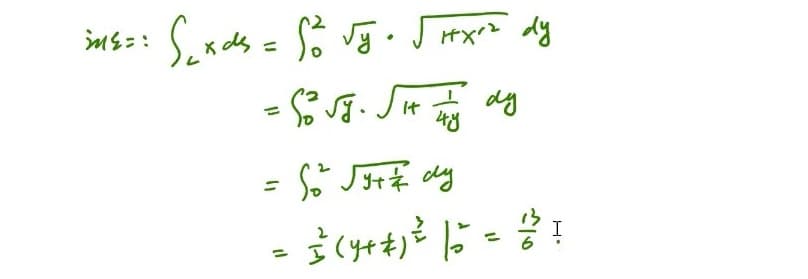 法二: ∫_L x ds = ∫_0^2 √y · √(1+x'^2) dy
= ∫_0^2 √y · √(1+ 1/(4y)) dy
= ∫_0^2 √(y+1/4) dy
= 2/3 (y+1/4)^(3/2) |_0^2 = 13/6 .